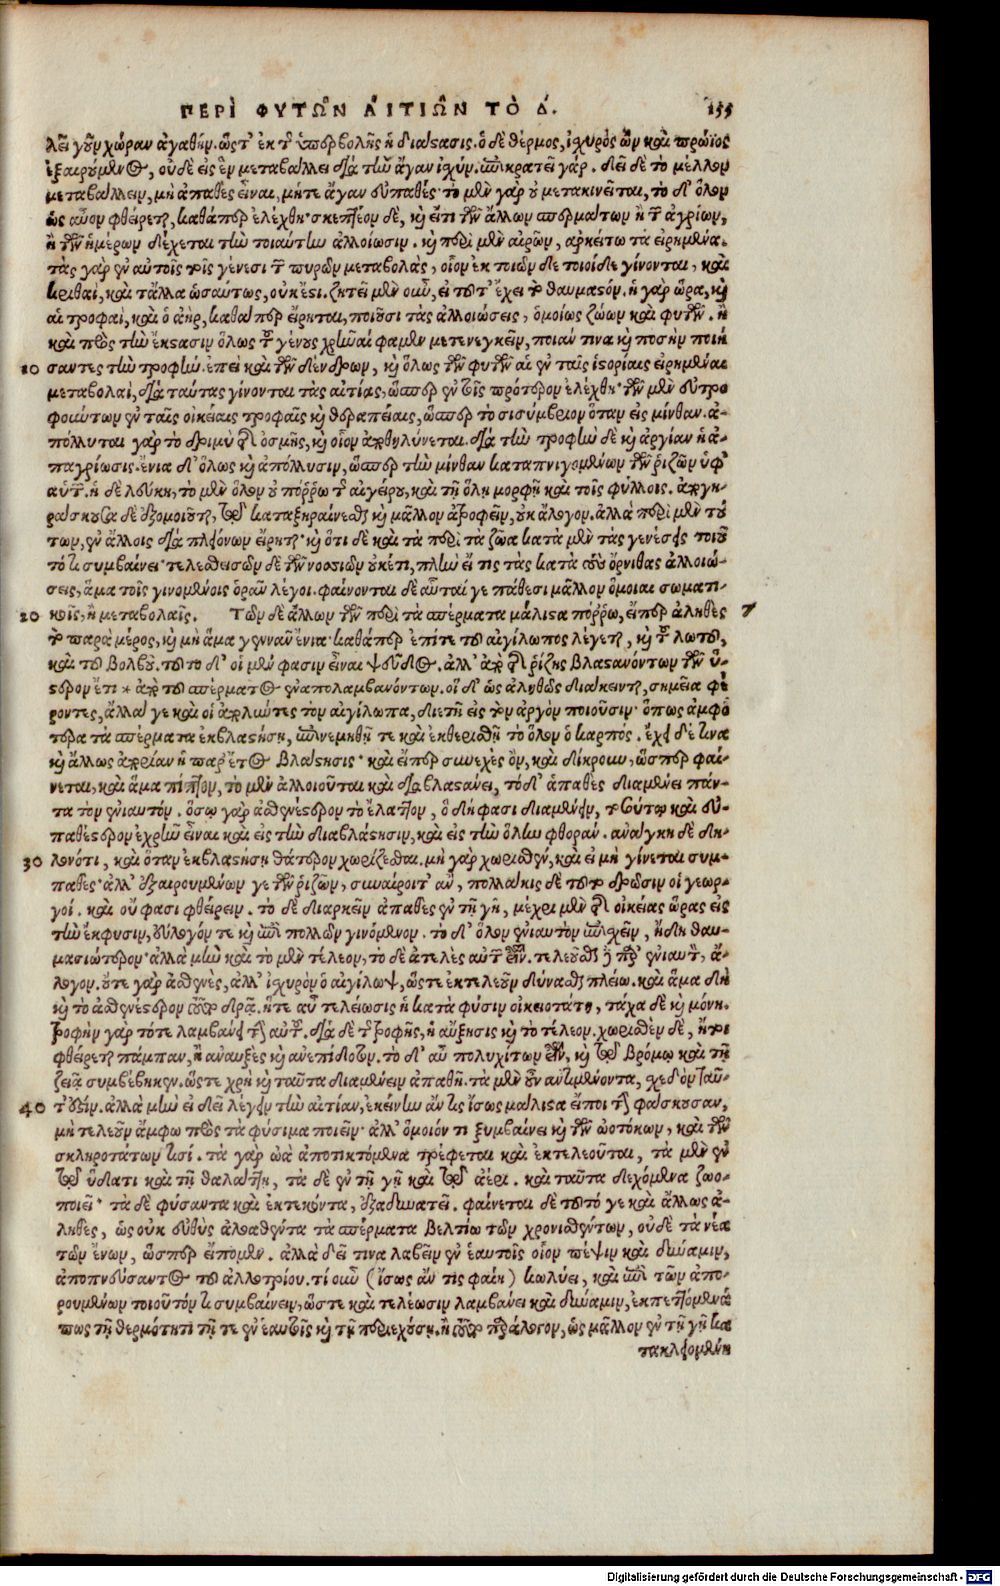 ΠΕΡῚ ΦΥΤΩ͂Ν ΑἸΤΙΩ͂Ν ΤῸ Δ. 155
λεῖ γοῦν χώραν ἀγαθήν. ὥστ' ἐκ τ ὑπερβολῆς ἡ διάστασις. ὁ δὲ θέρμος, ἰχυρὸς ὢν καὶ πρώϊος
ἐξαιρούμενος, οὐδὲ εἰς ἓν μεταβάλλει διὰ τὴν ἄγαν ἰχύν. ἐπικρατεῖ γάρ. δεῖ δὲ τὸ μέλλον
μεταβάλλειν, μὴ ἀπαθὲς εἶναι, μήτε ἄγαν εὐπαθές· τὸ μὲν γὰρ οὐ μετακινεῖται, τὸ δ' ὅλον
ὡς αὖον φθείρεται, καθάπερ ἐλέχθη· σκεπτέον δὲ, καὶ εἴ τι τῶν ἄλλων σπερμάτων ἢ τ ἀγρίων,
ἢ τῶν ἡμέρων δέχεται τὴν τοιαύτην ἀλλοίωσιν. καὶ περὶ μὲν αἰρῶν, ἀρκείτω τὰ εἰρημένα.
τὰς γὰρ ἐν αὐτοῖς τοῖς γένεσι τ πυρῶν μεταβολὰς, οἷον ἐκ ποιῶν δὲ ποιοίδε γίνονται, καὶ
κριθαὶ, καὶ τἄλλα ὡσαύτως, οὐκ ἔστι. ζητεῖ μὲν οὖν, εἰ τοῦτ' ἔχει τὸ θαυμαστόν. ἡ γὰρ ὥρα, καὶ
αἱ τροφαὶ, καὶ ὁ ἀὴρ, καθάπερ εἴρηται, ποιοῦσι τὰς ἀλλοιώσεις, ὁμοίως ζώων καὶ φυτῶν. ἢ
καὶ πρὸς τὴν ἔκστασιν ὅλως τ γένους χρῆναί φαμεν μετενεγκεῖν, ποιάν τινα καὶ ποσὴν ποιή
10 σαντες τὴν τροφήν. ἐπεὶ καὶ τῶν δένδρων, καὶ ὅλως τῶν φυτῶν αἱ ἐν ταῖς ἱστορίαις εἰρημέναι
μεταβολαὶ, διὰ ταύτας γίνονται τὰς αἰτίας, ὥσπερ ἐν τοῖς πρότερον ἐλέχθη· τῶν μὲν εὐτρο
φούντων ἐν ταῖς οἰκείαις τροφαῖς καὶ θεραπείαις, ὥσπερ τὸ σισύμβριον ὅταν εἰς μίνθαν. ἀ-
πόλλυται γὰρ τὸ δριμὺ τῆς ὀσμῆς, καὶ οἷον ἀποθηλύνεται. διὰ τὴν τροφὴν δὲ καὶ ἀργίαν ἡ ἀ-
παγρίωσις. ἔνια δ' ὅλως καὶ ἀπόλλυσιν, ὥσπερ τὴν μίνθαν καταπνιγομένων τῶν ῥιζῶν ὑφ'
αὑτ. ἡ δὲ λεύκη, τὸ μὲν ὅλον οὐ πόῤῥω τ αἰγείρου, καὶ τῇ ὅλῃ μορφῇ καὶ τοῖς φύλλοις. ἀπογη-
ράσκουσα δὲ ἐξομοιοῦται, τῷ καταξηραίνεσθαι καὶ μᾶλλον ἀτροφεῖν, οὐκ ἄλογον. ἀλλὰ περὶ μὲν τού
των, ἐν ἄλλοις διὰ πλειόνων εἴρηται· καὶ ὅτι δὲ καὶ τὰ περὶ τὰ ζῶα κατὰ μὲν τὰς γενέσεις τοιοῦ
τό τι συμβαίνει· τελεωθεισῶν δὲ τῶν νοσσιῶν οὐκέτι, πλὴν εἴ τις τὰς κατὰ τοὺς ὄρνιθας ἀλλοιώ-
σεις, ἅμα τοῖς γινομένοις ὁρᾶν λέγοι. φαίνονται δὲ αὗταί γε πάθεσι μᾶλλον ὅμοιαι σωματι-
20 κοῖς, ἢ μεταβολαῖς. Τῶν δὲ ἄλλων τῶν περὶ τὰ σπέρματα μάλιστα πόῤῥω, εἴπερ ἀληθὲς 7
τὸ παρὰ μέρος, καὶ μὴ ἅμα γεννᾶν ἔνια· καθάπερ ἐπί τε τοῦ αἰγίλωπος λέγεται, καὶ τοῦ λωτοῦ,
καὶ τοῦ βολβοῦ. τοῦτο δ' οἱ μέν φασιν εἶναι ψεῦδος. ἀλλ' ἀπὸ τῆς ῥίζης βλαστανόντων τῶν ὕ-
στερον ἔτι * ἀπὸ τοῦ σπέρματος ἐναπολαμβανόντων. οἱ δ' ὡς ἀληθῶς διάκεινται, σημεῖα φέ
ροντες, ἄλλα γε καὶ οἱ ἀπολύντες τὸν αἰγίλωπα, διετῆ εἰς τὸν ἀργὸν ποιοῦσιν· ὅπως ἀμφό
τερα τὰ σπέρματα ἐκβλαστήσῃ, ἐπινεμηθῇ τε καὶ ἐκθερισθῇ τὸ ὅλον ὁ καρπός. ἔχει δέ τινα
καὶ ἄλλως ἀπορίαν ἡ παρ' ἔτος βλάστησις· καὶ εἴπερ συνεχὲς ὂν, καὶ δίκρουν, ὥσπερ φαί-
νεται, καὶ ἅμα πίπτον, τὸ μὲν ἀλλοιοῦται καὶ διαβλαστάνει, τὸ δ' ἀπαθὲς διαμένει πάν-
τα τὸν ἐνιαυτόν. ὅσῳ γὰρ ἀσθενέστερον τὸ ἔλαττον, ὃ δή φασι διαμένειν, τοσούτῳ καὶ εὐ-
παθέστερον ἐχρῆν εἶναι καὶ εἰς τὴν διαβλάστησιν, καὶ εἰς τὴν ὅλην φθοράν. ἀνάγκη δὲ δη-
30 λονότι, καὶ ὅταν ἐκβλαστήσῃ θάτερον χωρίζεσθαι. μὴ γὰρ χωρισθὲν, καὶ εἰ μὴ γίνεται συμ-
παθές· ἀλλ' ἐξαιρουμένων γε τῶν ῥιζῶν, συναίροιτ' ἄν, πολλάκις δὲ τοῦτο δρῶσιν οἱ γεωρ-
γοί. καὶ οὔ φασι φθείρειν. τὸ δὲ διαρκεῖν ἀπαθὲς ἐν τῇ γῇ, μέχρι μὲν τῆς οἰκείας ὥρας εἰς
τὴν ἔκφυσιν, εὔλογόν τε καὶ ἐπὶ πολλῶν γινόμενον. τὸ δ' ὅλον ἐνιαυτὸν ἐπισχεῖν, ἤδη θαυ-
μασιώτερον· ἀλλὰ μὴν καὶ τὸ μὲν τέλεον, τὸ δὲ ἀτελὲς αὐτ εἶναι. τελεοῦσθαι παρ' ἐνιαυτ, ἄ-
λογον. οὔτε γὰρ ἀσθενὲς, ἀλλ' ἰχυρὸν ὁ αἰγίλωψ, ὥστε ἐκτελεοῦν δύνασθαι πλείω. καὶ ἅμα δὴ
καὶ τὸ ἀσθενέστερον τοῦτο δρᾷ. ἥτε αὖ τελείωσις ἡ κατὰ φύσιν οἰκειοτάτη, τάχα δὲ καὶ μόνη.
τροφὴν γὰρ τότε λαμβάνει τὴν αὑτ. διὰ δὲ τ τροφῆς, ἡ αὔξησις καὶ τὸ τέλεον. χωρισθὲν δὲ, ἤτοι
φθείρεται πάμπαν, ἢ ἀναυξὲς καὶ ἀνεπίδοτον. τὸ δ' αὖ πολυχίτων εἶναι, καὶ τῷ βρόμῳ καὶ τῇ
ζειᾷ συμβέβηκεν. ὥστε χρὴ καὶ ταῦτα διαμένειν ἀπαθῆ. τὰ μὲν οὖν ἀντικείμενα, σχεδὸν ταῦ-
40 τ' ἐστίν. ἀλλὰ μὴν εἰ δεῖ λέγειν τὴν αἰτίαν, ἐκείνην ἄν τις ἴσως μάλιστα εἴποι τὴν φάσκουσαν,
μὴ τελεοῦν ἄμφω πρὸς τὰ φύσιμα ποιεῖν· ἀλλ' ὅμοιόν τι ξυμβαίνει καὶ τῶν ὠοτόκων, καὶ τῶν
σκληροτάτων τισί. τὰ γὰρ ὠὰ ἀποτικτόμενα τρέφεται καὶ ἐκτελεοῦται, τὰ μὲν ἐν
τῷ ὕδατι καὶ τῇ θαλάττῃ, τὰ δὲ ἐν τῇ γῇ καὶ τῷ ἀέρι. καὶ ταῦτα δεχόμενα ζωο-
ποιεῖ· τὰ δὲ φύσαντα καὶ ἐκτεκόντα, ἐξαδυνατεῖ. φαίνεται δὲ τοῦτό γε καὶ ἄλλως ἀ-
ληθὲς, ὡς οὐκ εὐθὺς ἁδρυθέντα τὰ σπέρματα βελτίω τῶν χρονισθέντων, οὐδὲ τὰ νέα
τῶν ἔνων, ὥσπερ εἴπομεν. ἀλλὰ δεῖ τινα λαβεῖν ἐν ἑαυτοῖς οἷον πέψιν καὶ δύναμιν,
ἀποπνεύσαντος τοῦ ἀλλοτρίου. τί οὖν (ἴσως ἄν τις φαίη) κωλύει, καὶ ἐπὶ τῶν ἀπο-
ρουμένων τοιοῦτόν τι συμβαίνειν, ὥστε καὶ τελέωσιν λαμβάνει καὶ δύναμιν, ἐκπεττόμενά
πως τῇ θερμότητι τῇ τε ἐν ἑαυτοῖς καὶ τῇ περιεχούσῃ. ἢ τοῦτο παράλογον, ὡς μᾶλλον ἐν τῇ γῇ κα
τακλειομένη
Digitalisierung gefördert durch die Deutsche Forschungsgemeinschaft - DFG